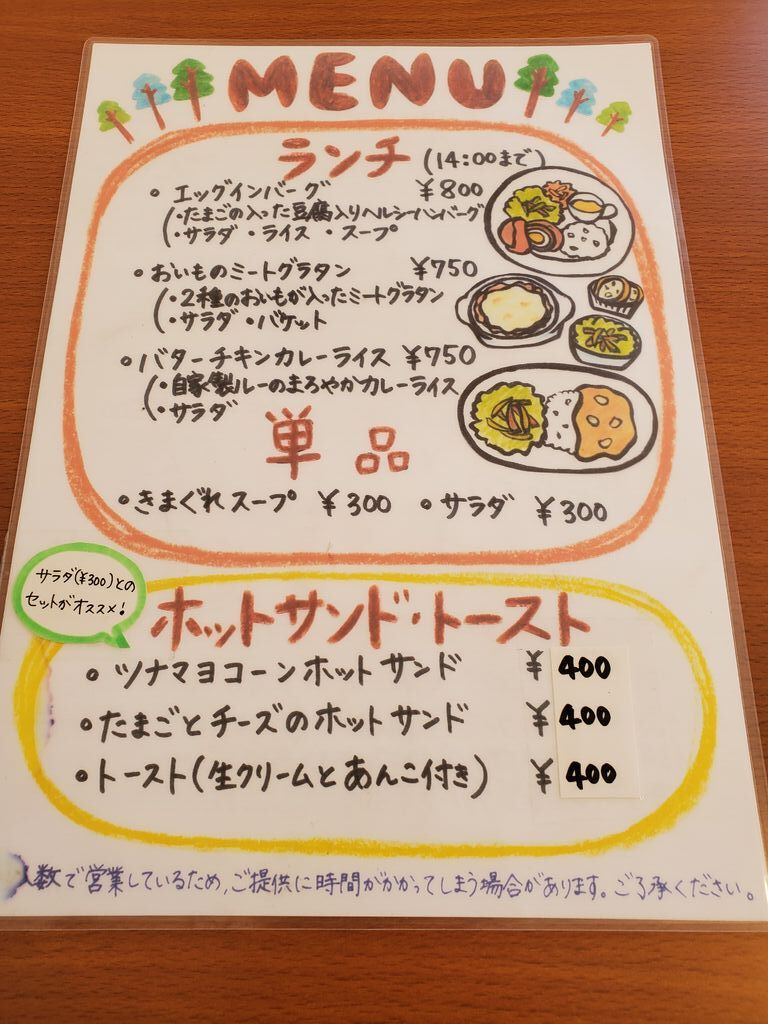 MENU
ランチ (14:00まで)
・エッグインバーグ ¥800
(・たまごの入った豆腐入りヘルシーハンバーグ
・サラダ ・ライス ・スープ
・おいものミートグラタン ¥750
(・2種のおいもが入ったミートグラタン
・サラダ ・バケット
・バターチキンカレーライス ¥750
(・自家製ルーのまろやかカレーライス
・サラダ
単品
・きまぐれスープ ¥300 ・サラダ ¥300
サラダ(¥300)との
セットがオススメ!
ホットサンド・トースト
・ツナマヨコーンホットサンド ¥400
・たまごとチーズのホットサンド ¥400
・トースト(生クリームとあんこ付き) ¥400
人数で営業しているため、ご提供に時間がかかってしまう場合があります。ご了承ください。